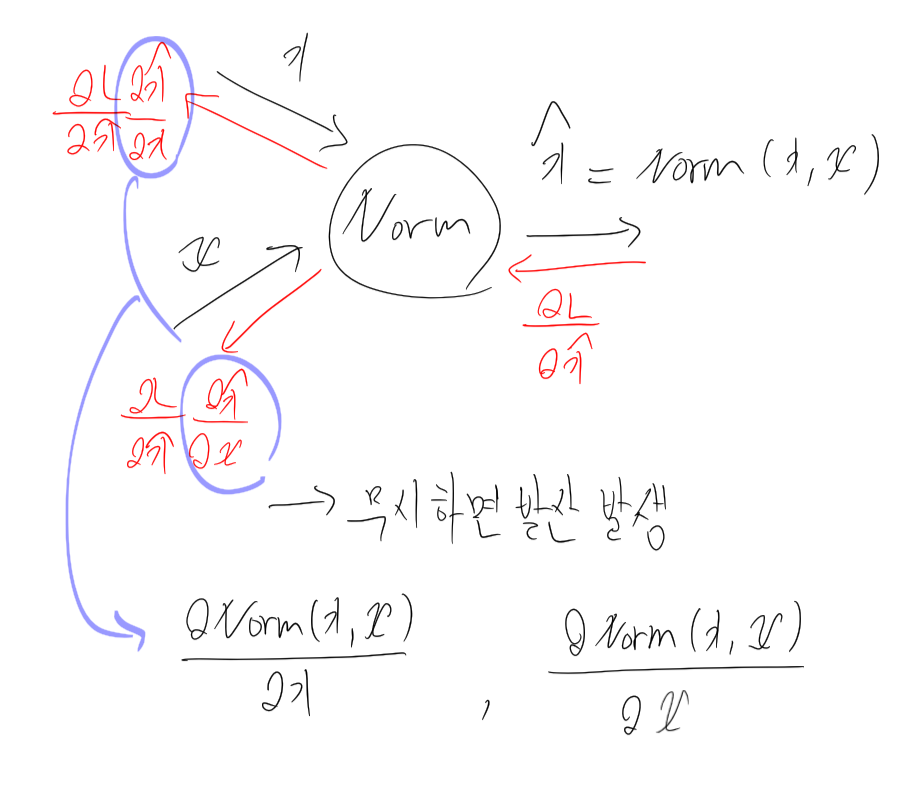 x
∂L/∂x̂ ∂x̂/∂x
x̂ = Norm(x, 𝒳)
𝒳
Norm
∂L/∂x̂
∂L/∂x̂ ∂x̂/∂𝒳
→ 무시하면 발산 발생
∂Norm(x, 𝒳)/∂x , ∂Norm(x, 𝒳)/∂𝒳